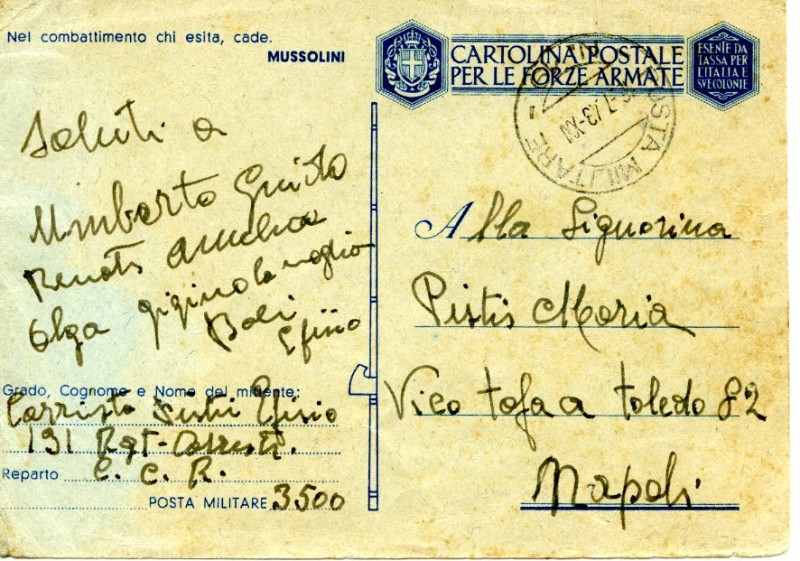 Nel combattimento chi esita, cade.
MUSSOLINI
CARTOLINA POSTALE
PER LE FORZE ARMATE
ESENTE DA
TASSA PER
L'ITALIA E
SVE COLONIE
POSTA MILITARE
Saluti a
Umberto Guido
Renata Amelia
Olga gigino la moglie
Baci
Efisio
Alla Signorina
Pistis Maria
Vico tofa a toledo 82
Napoli
Grado, Cognome e Nome del mittente:
Carrista Efisio
131 Rgt-
Reparto C. C. R.
POSTA MILITARE 3500